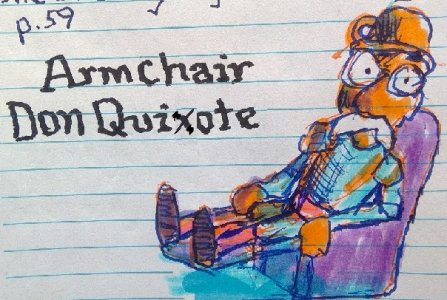 p.59
Armchair
Don Quixote